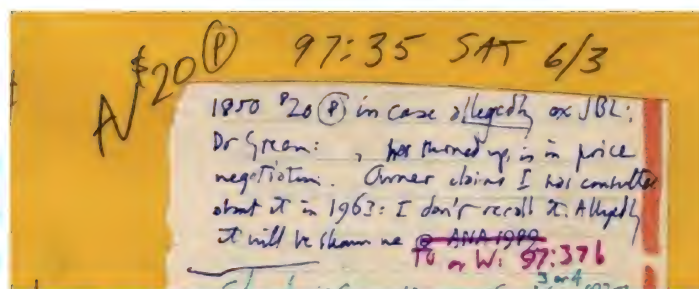 N $20 Ⓟ 97:35 SAT 6/3
1850 $20 Ⓟ in case allegedly ex JBL;
Dr Green: , has turned up, is in price
negotiation. Owner claims I was consulted
about it in 1963: I don't recall it. Allegedly
it will be shown me @ ANA 1989
TU or W: 97:376
3 or 4